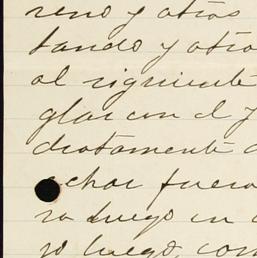 reno y otros
tando y otro
al siguiente
glar con el y
diatamente
echar fuera
ra luego en
yo luego, com